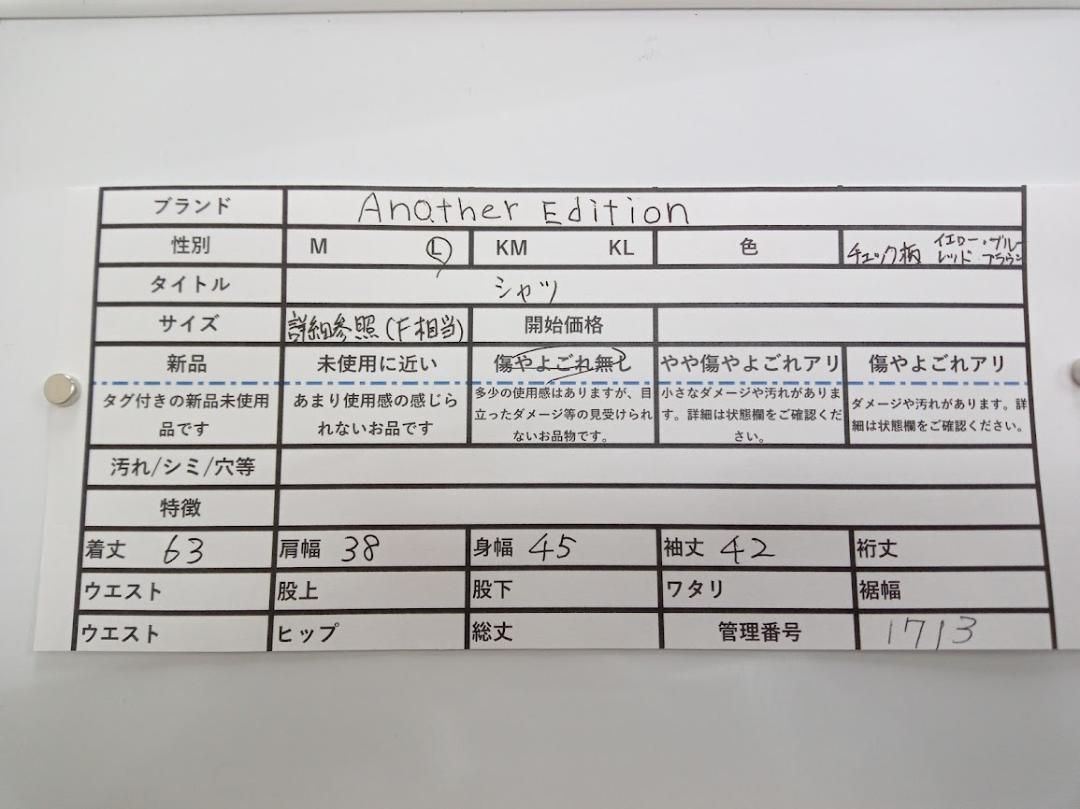 ブランド Another Edition
性別 M L KM KL 色 チェック柄 イエロー・ブルー
レッド ブラウン
タイトル シャツ
サイズ 詳細参照(F相当) 開始価格
新品 未使用に近い 傷やよごれ無し やや傷やよごれアリ 傷やよごれアリ
タグ付きの新品未使用
品です
あまり使用感の感じら
れないお品です
多少の使用感はありますが、目
立ったダメージ等の見受けられ
ないお品物です。
小さなダメージや汚れがありま
す。詳細は状態欄をご確認くだ
さい。
ダメージや汚れがあります。詳
細は状態欄をご確認ください。
汚れ/シミ/穴等
特徴
着丈 63 肩幅 38 身幅 45 袖丈 42 裄丈
ウエスト 股上 股下 ワタリ 裾幅
ウエスト ヒップ 総丈 管理番号 1713